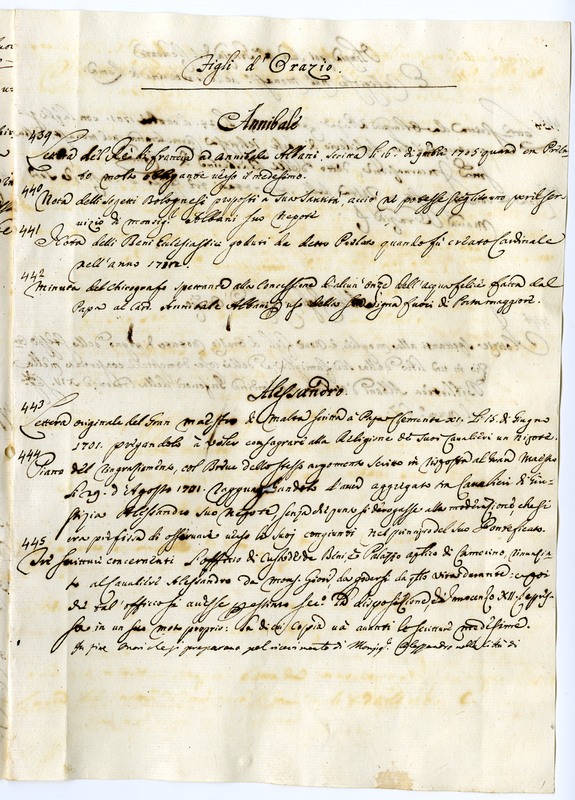 Figli d'Orazio.
Annibale
439
Lettera del Re di Francia ad Annibale Albani scritta li 16. di 1705 quand'era Prela-
to molto obligante verso il medesimo.
440
Nota delli Sogetti Bolognesi proposti a Sua Santità, acciò ne potesse scegliere uno per il ser-
vizio di monsig.r Albani suo Nepote
441
Nota delli Beni Eclesiastici goduti da detto Prelato quando fù creato Cardinale
nell'anno 1712.
442
Minuta del chirografo spettante alla Concessione di alcun' onze dell'acqua felice fatta dal
Papa al Card. Annibale Albani p uso della sua Vigna fuori di Porta maggiore.
Alessandro.
443
Lettera originale del Gran maestro di Malta scritta à Papa Clemente XI. li 15. di Giugno
1701. pregandolo à voler consagrare alla Religione de suoi Cavalieri un Nipote.
444
Piano del Ringraziamento, col Breve dello stesso argomento scritto in risposta al Gran Maestro
li 29. d'Agosto 1701. ragguagliandolo d'aver aggregato in Cavaliere di Giu-
stizia Alessandro suo Nepote senza che punto si derogasse alla moderazione che si
era prefissa di osservare verso la suoi congiunti nel principio del suo Pontificato.
445
Tre scritture concernenti l'officio di Custode de Beni, e Palazzo aplico di Camerino, rinunzia-
to al Cavaliere Alessandro da Mons. Giori da godersi da esso vita durante: e poi
che tal' officio si avesse p estinto sec.o la disposizione d'Innocenzo XII. espres-
sa in un suo moto proprio: la di cui copia va avanti le scritture medesime.
In fine Onori che si preparano pel ricevimento di Monsig.r Alessandro nella Città di